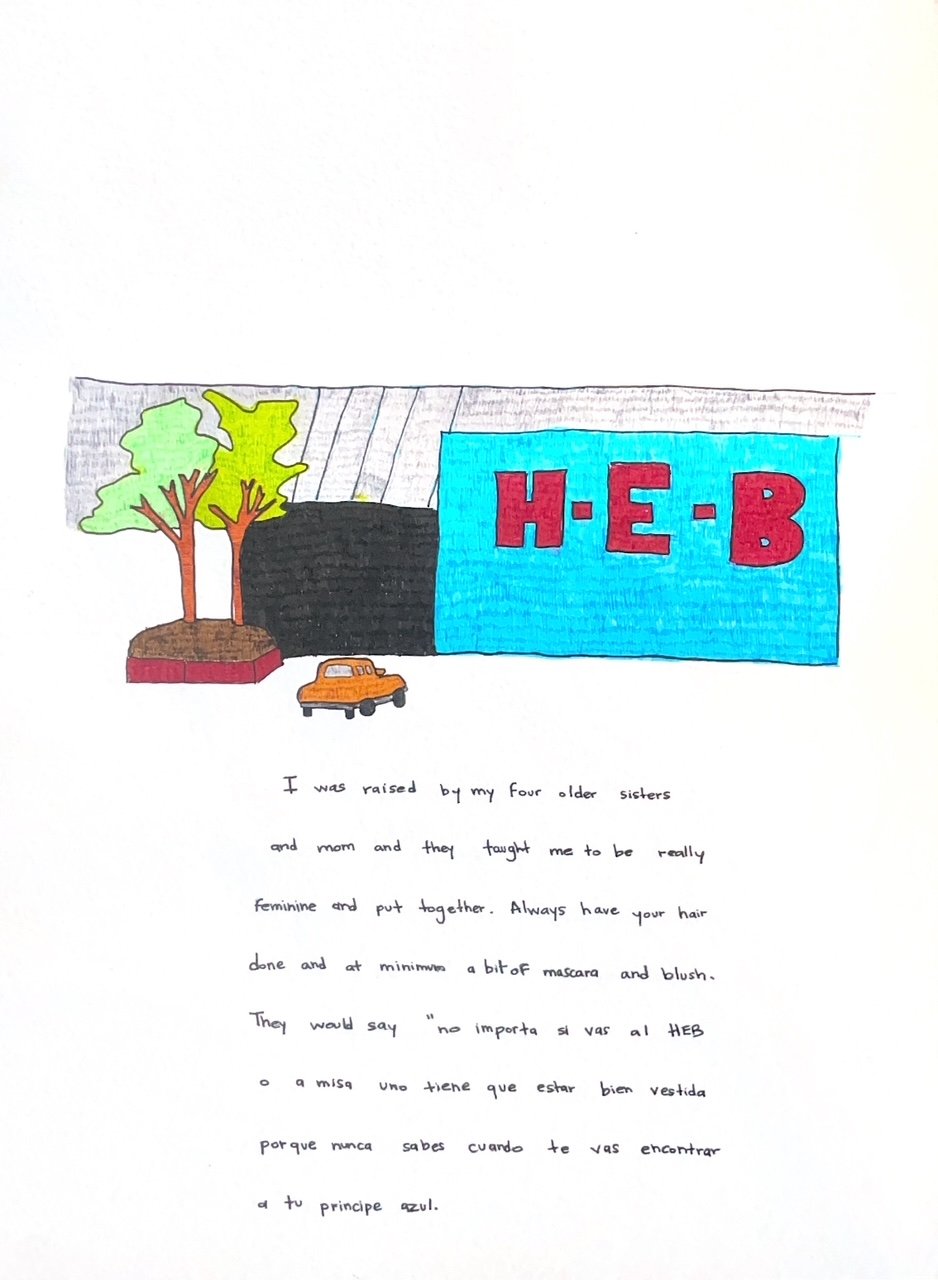 H-E-B
I was raised by my four older sisters
and mom and they taught me to be really
feminine and put together. Always have your hair
done and at minimum a bit of mascara and blush.
They would say "no importa si vas al HEB
o a misa uno tiene que estar bien vestida
porque nunca sabes cuando te vas encontrar
a tu principe azul.